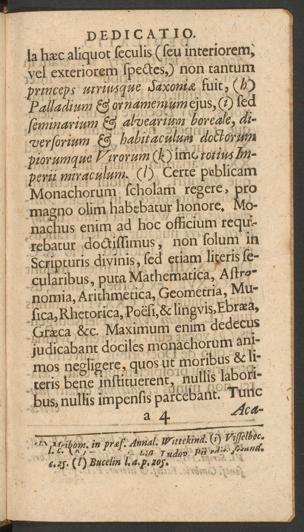 DEDICATIO.
la hæc aliquot seculis (seu interiorem,
vel exteriorem spectes,) non tantum
princeps utriusque Saxoniæ fuit, (h)
Palladium & ornamentum ejus, (i) sed
seminarium & alvearium boreale, di-
versorium & habitaculum doctorum
piorumque Virorum (k) imò totius Im-
perii miraculum. (l) Certe publicam
Monachorum scholam regere, pro
magno olim habebatur honore. Mo-
nachus enim ad hoc officium requi-
rebatur doctissimus, non solum in
Scripturis divinis, sed etiam literis se-
cularibus, puta Mathematica, Astro-
nomia, Arithmetica, Geometria, Mu-
sica, Rhetorica, Poësi, & lingvis, Ebræa,
Græca &c. Maximum enim dedecus
judicabant dociles monachorum ani-
mos negligere, quos ut moribus & li-
teris bene instituerent, nullis labori-
bus, nullis impensis parcebant. Tunc
a 4
Aca-
Meibom. in præf. Annal. Wittekind. (i) Visselbec.
l. c.
c. 25. (l) Bucelin l. a. p. 205.